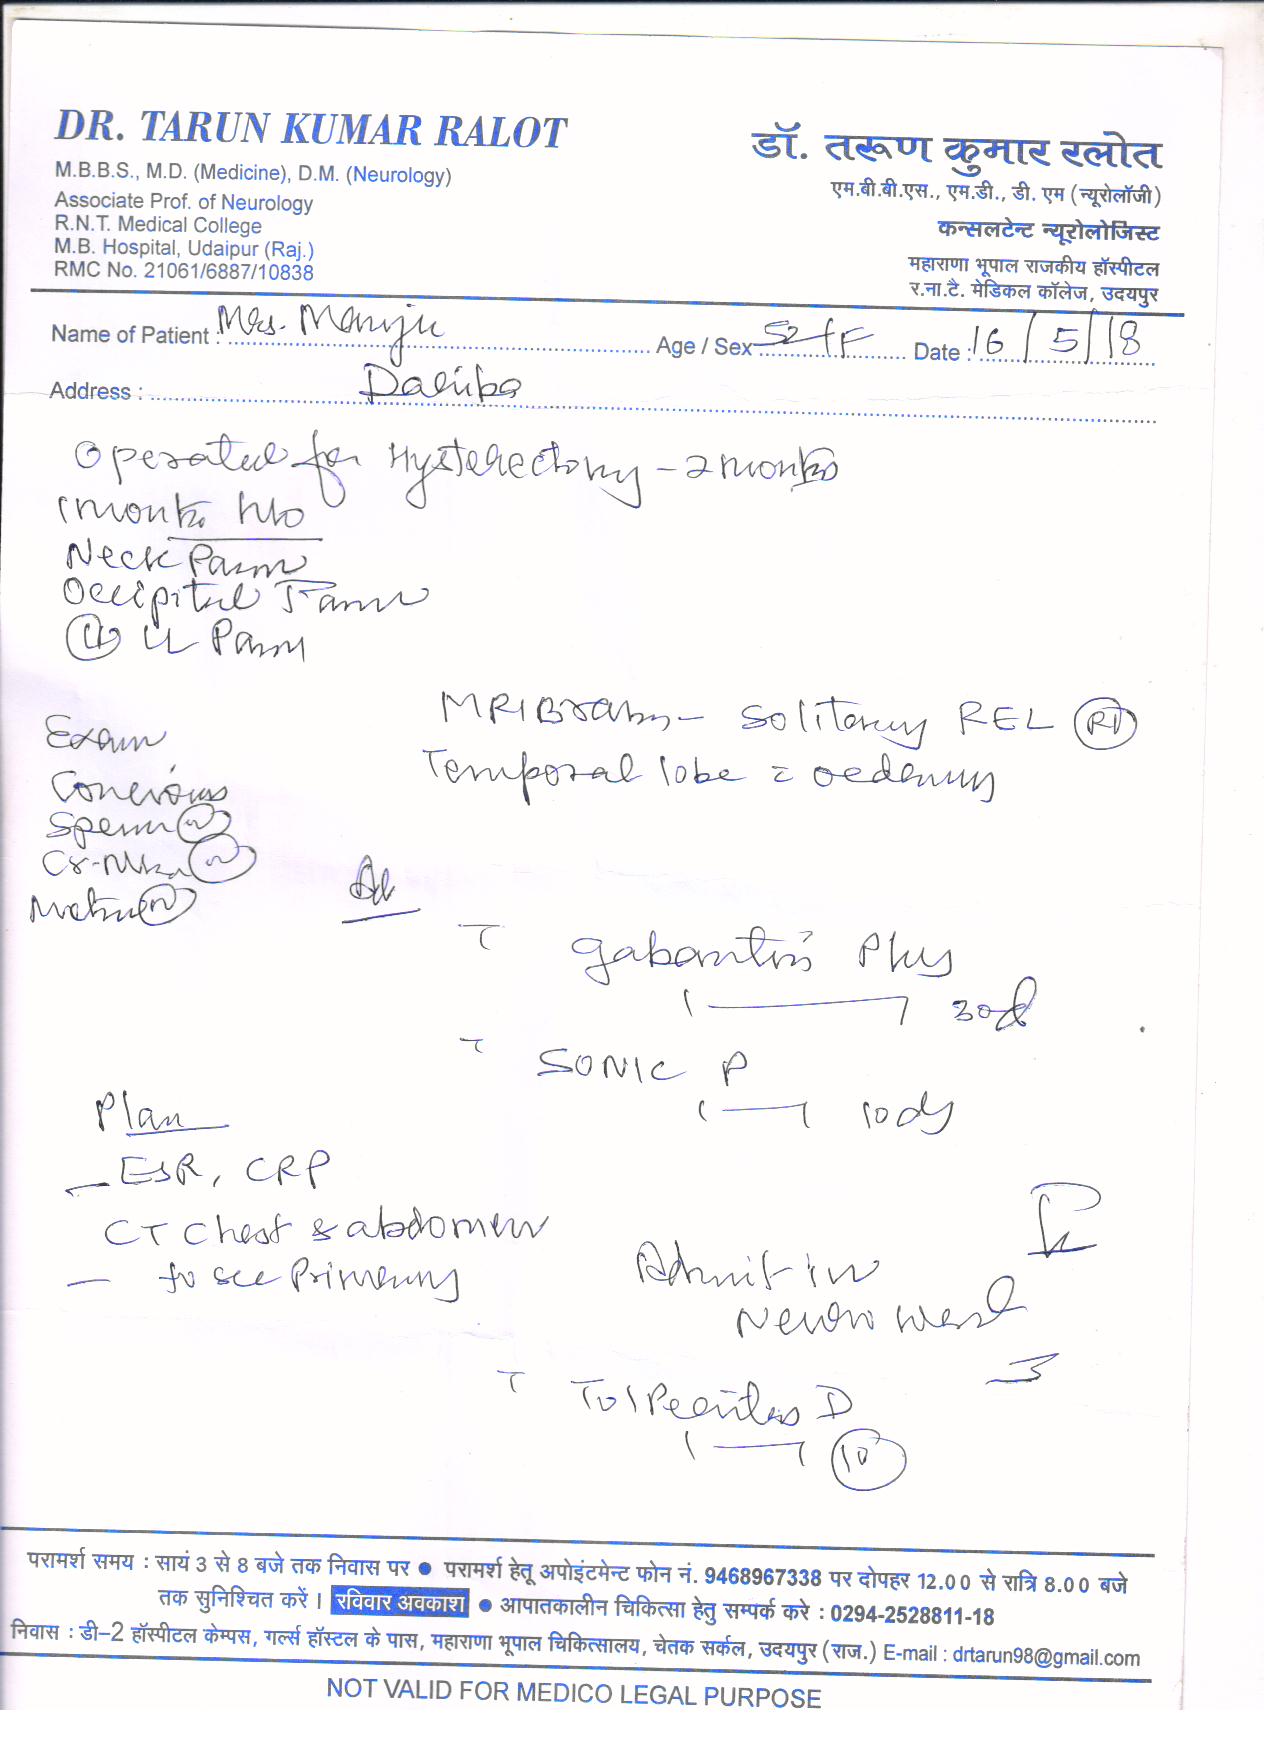 DR. TARUN KUMAR RALOT
M.B.B.S., M.D. (Medicine), D.M. (Neurology)
Associate Prof. of Neurology
R.N.T. Medical College
M.B. Hospital, Udaipur (Raj.)
RMC No. 21061/6887/10838
डॉ. तरूण कुमार रलोत
एम.बी.बी.एस., एम.डी., डी. एम (न्यूरोलॉजी)
कन्सलटेन्ट न्यूरोलोजिस्ट
महाराणा भूपाल राजकीय हॉस्पीटल
र.ना.टै. मेडिकल कॉलेज, उदयपुर
Name of Patient : Mrs. Manju Age / Sex 52/F Date : 16/5/18
Address :
Operated for Hysterectomy - 2 months
1 month h/o
Neck Pain
Occipital Pain
UL Pain
MRI Brain - Solitary REL Rt
Temporal lobe = oedema
Exam
Concious
Speech N
N
Motor N
Adv
T Gabantin Plus
1 — 1 30d
T SONIC P
1 — 1 10 dy
Plan
- ESR, CRP
CT Chest & abdomen
- to see Primary
Admit in
Neuro Ward
T Tolperitas D
1 — 1 10
परामर्श समय : सायं 3 से 8 बजे तक निवास पर ● परामर्श हेतू अपोइंटमेन्ट फोन नं. 9468967338 पर दोपहर 12.00 से रात्रि 8.00 बजे
तक सुनिश्चित करें। रविवार अवकाश ● आपातकालीन चिकित्सा हेतु सम्पर्क करे : 0294-2528811-18
निवास : डी-2 हॉस्पीटल केम्पस, गर्ल्स हॉस्टल के पास, महाराणा भूपाल चिकित्सालय, चेतक सर्कल, उदयपुर (राज.) E-mail : drtarun98@gmail.com
NOT VALID FOR MEDICO LEGAL PURPOSE